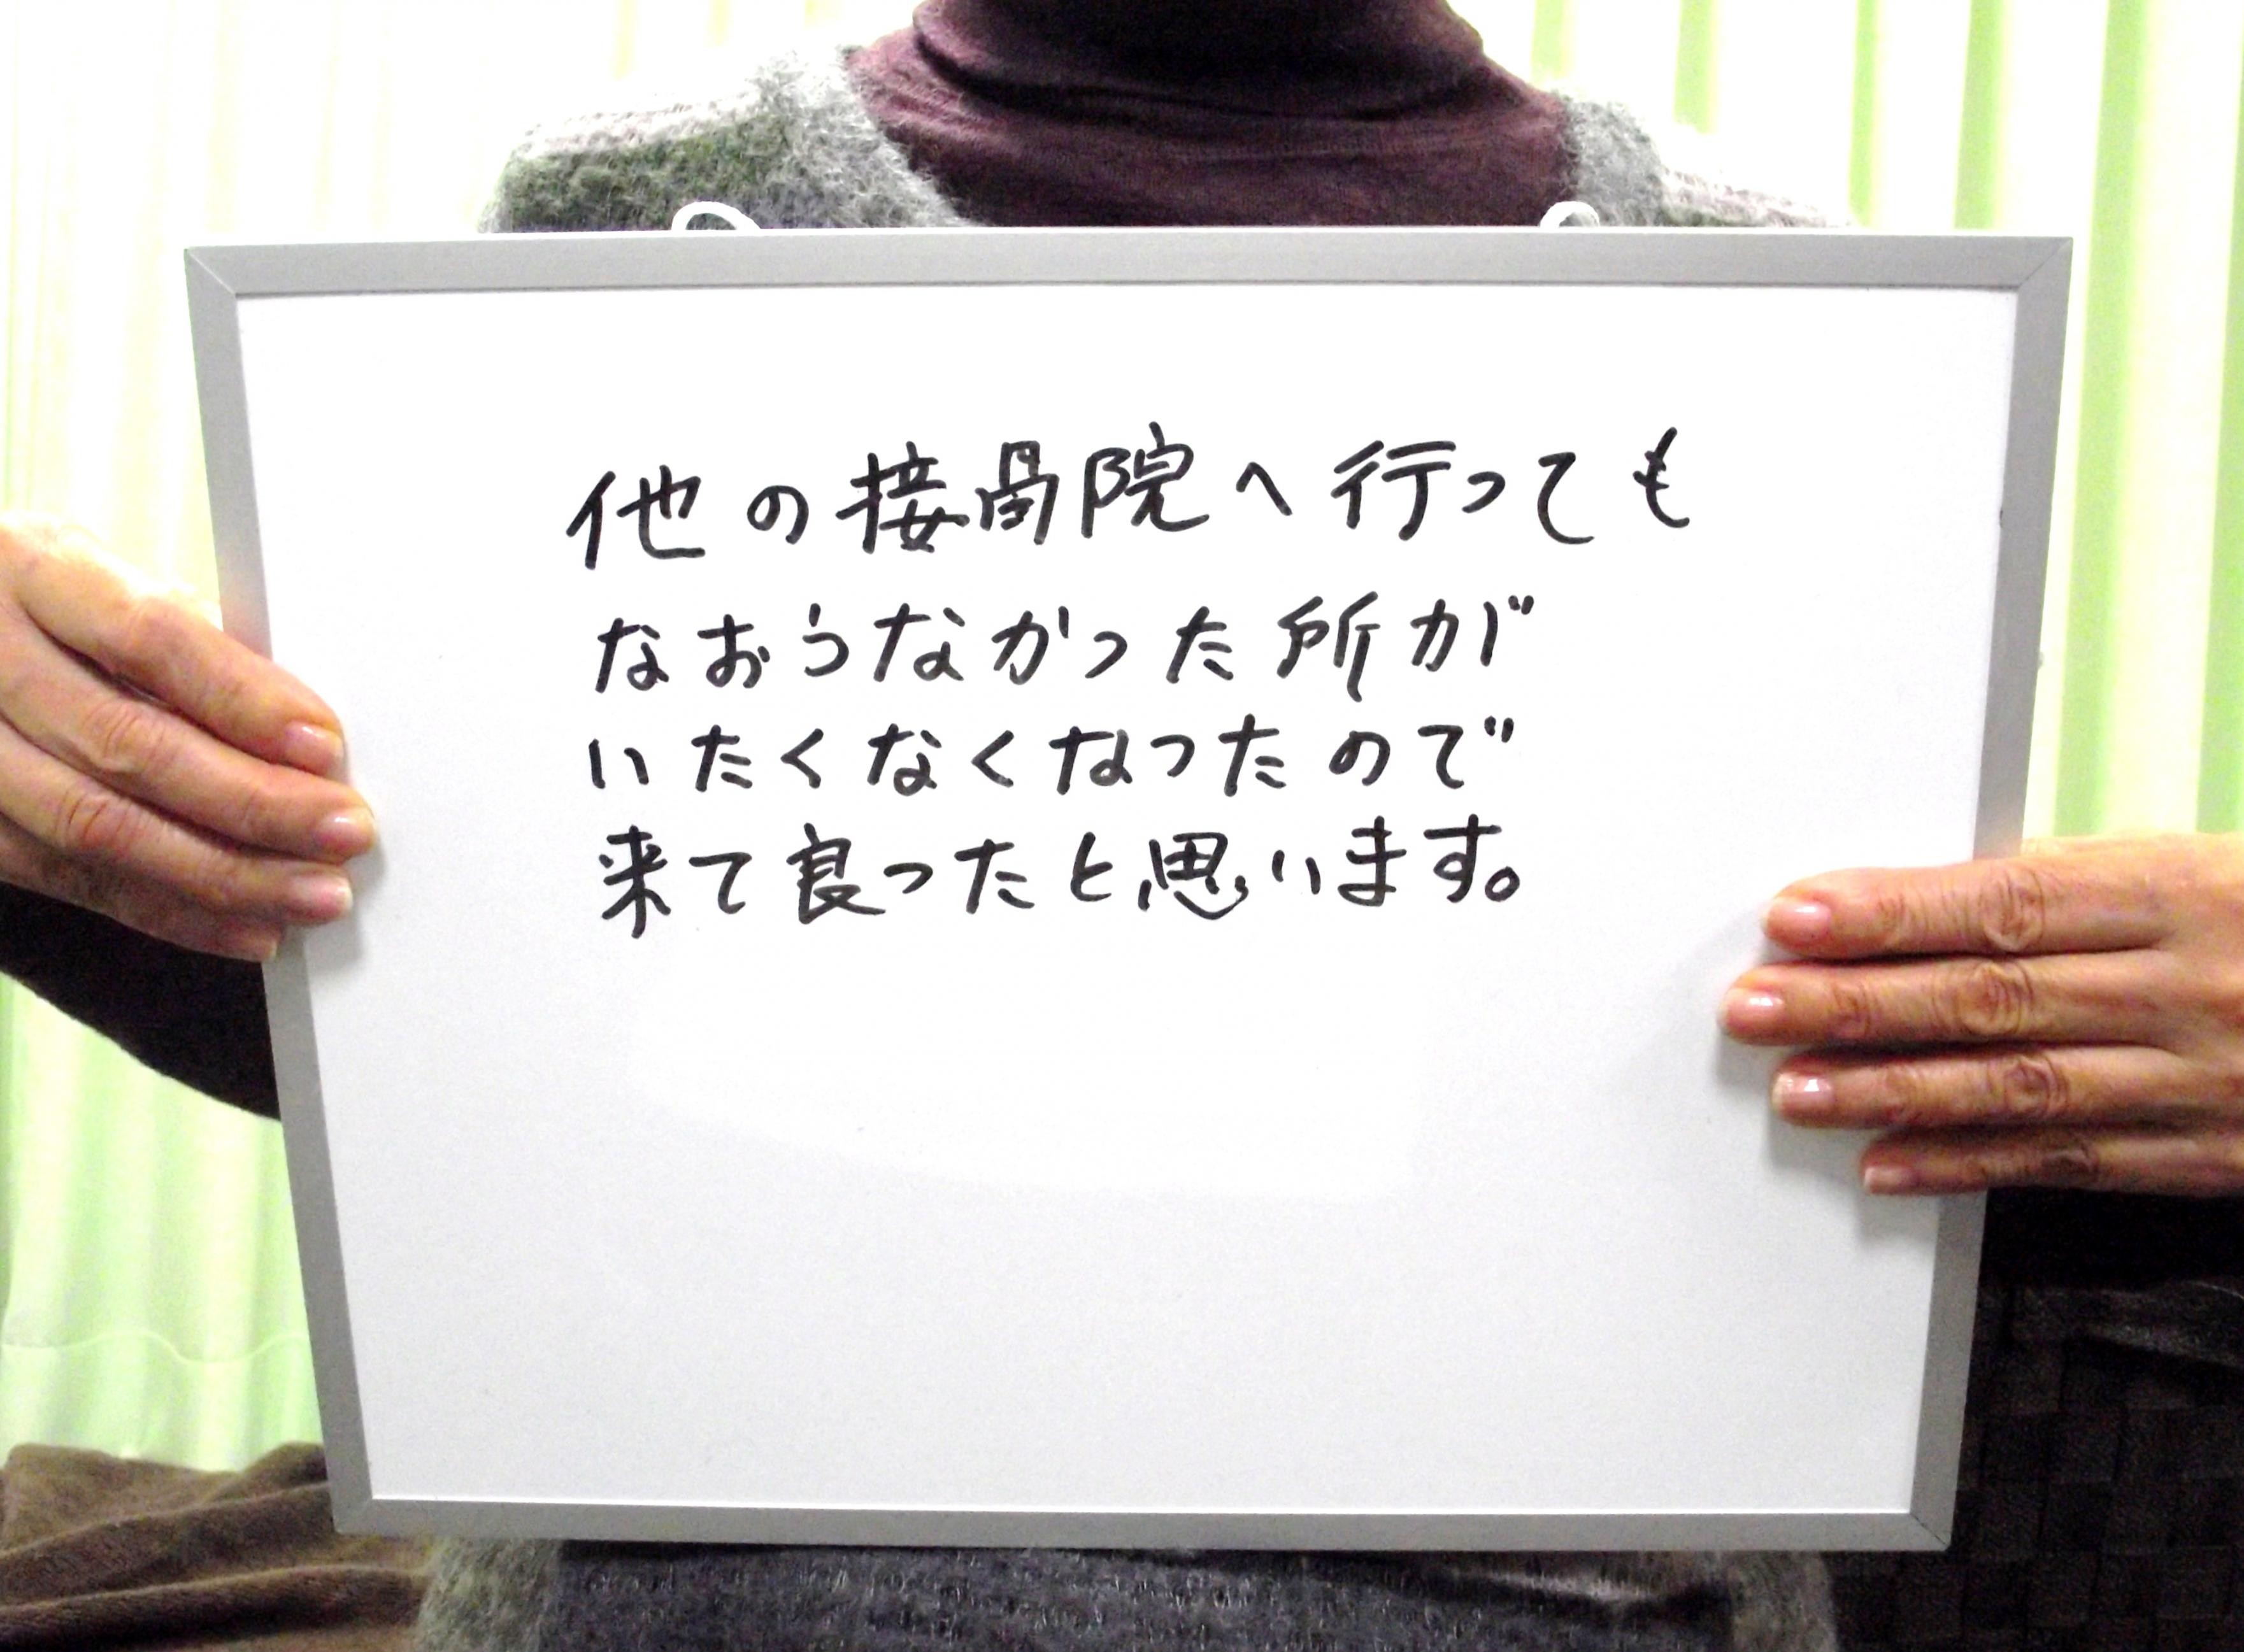 他の接骨院へ行っても
なおらなかった所が
いたくなくなったので
来て良ったと思います。